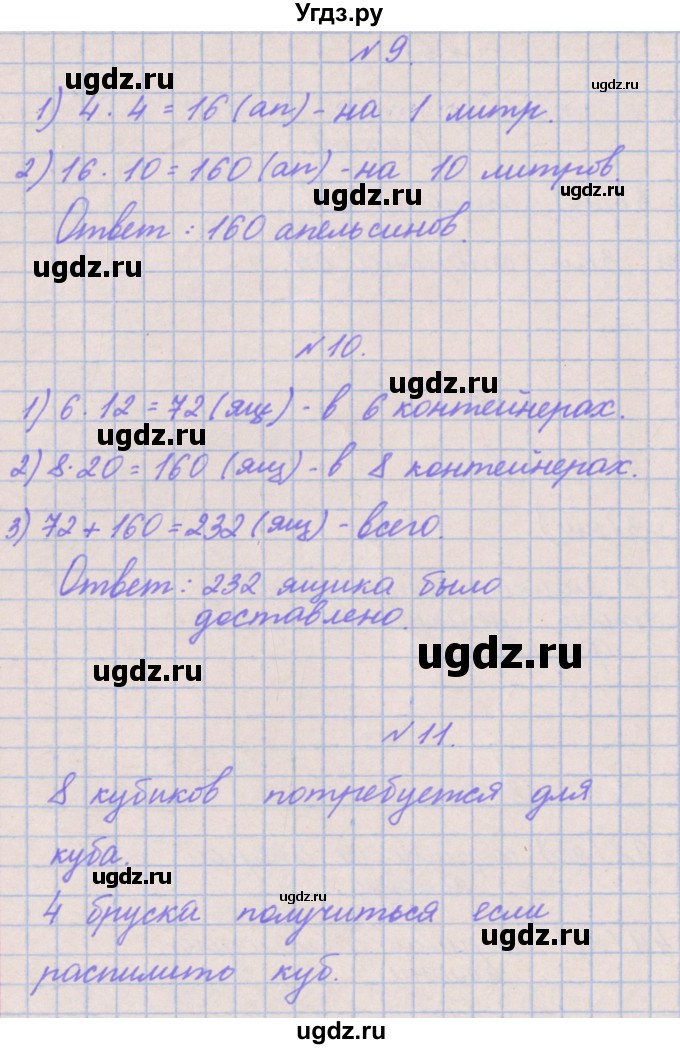 Угдз.ру
№ 9.
ugdz.ru
ugdz.ru
1) 4 · 4 = 16 (ап) - на 1 литр.
2) 16 · 10 = 160 (ап) - на 10 литров.
ugdz.ru
ugdz.ru
Ответ : 160 апельсинов.
ugdz.ru
№ 10.
ugdz.ru
1) 6 · 12 = 72 (ящ) - в 6 контейнерах.
ugdz.ru
2) 8 · 20 = 160 (ящ) - в 8 контейнерах.
3) 72 + 160 = 232 (ящ) - всего.
ugdz.ru
Ответ : 232 ящика было
доставлено.
ugdz.ru
ugdz.ru
№ 11.
8 кубиков потребуется для
куба.
ugdz.ru
ugdz.ru
4 бруска получиться если
ugdz.ru
распилить куб.
ugdz.ru